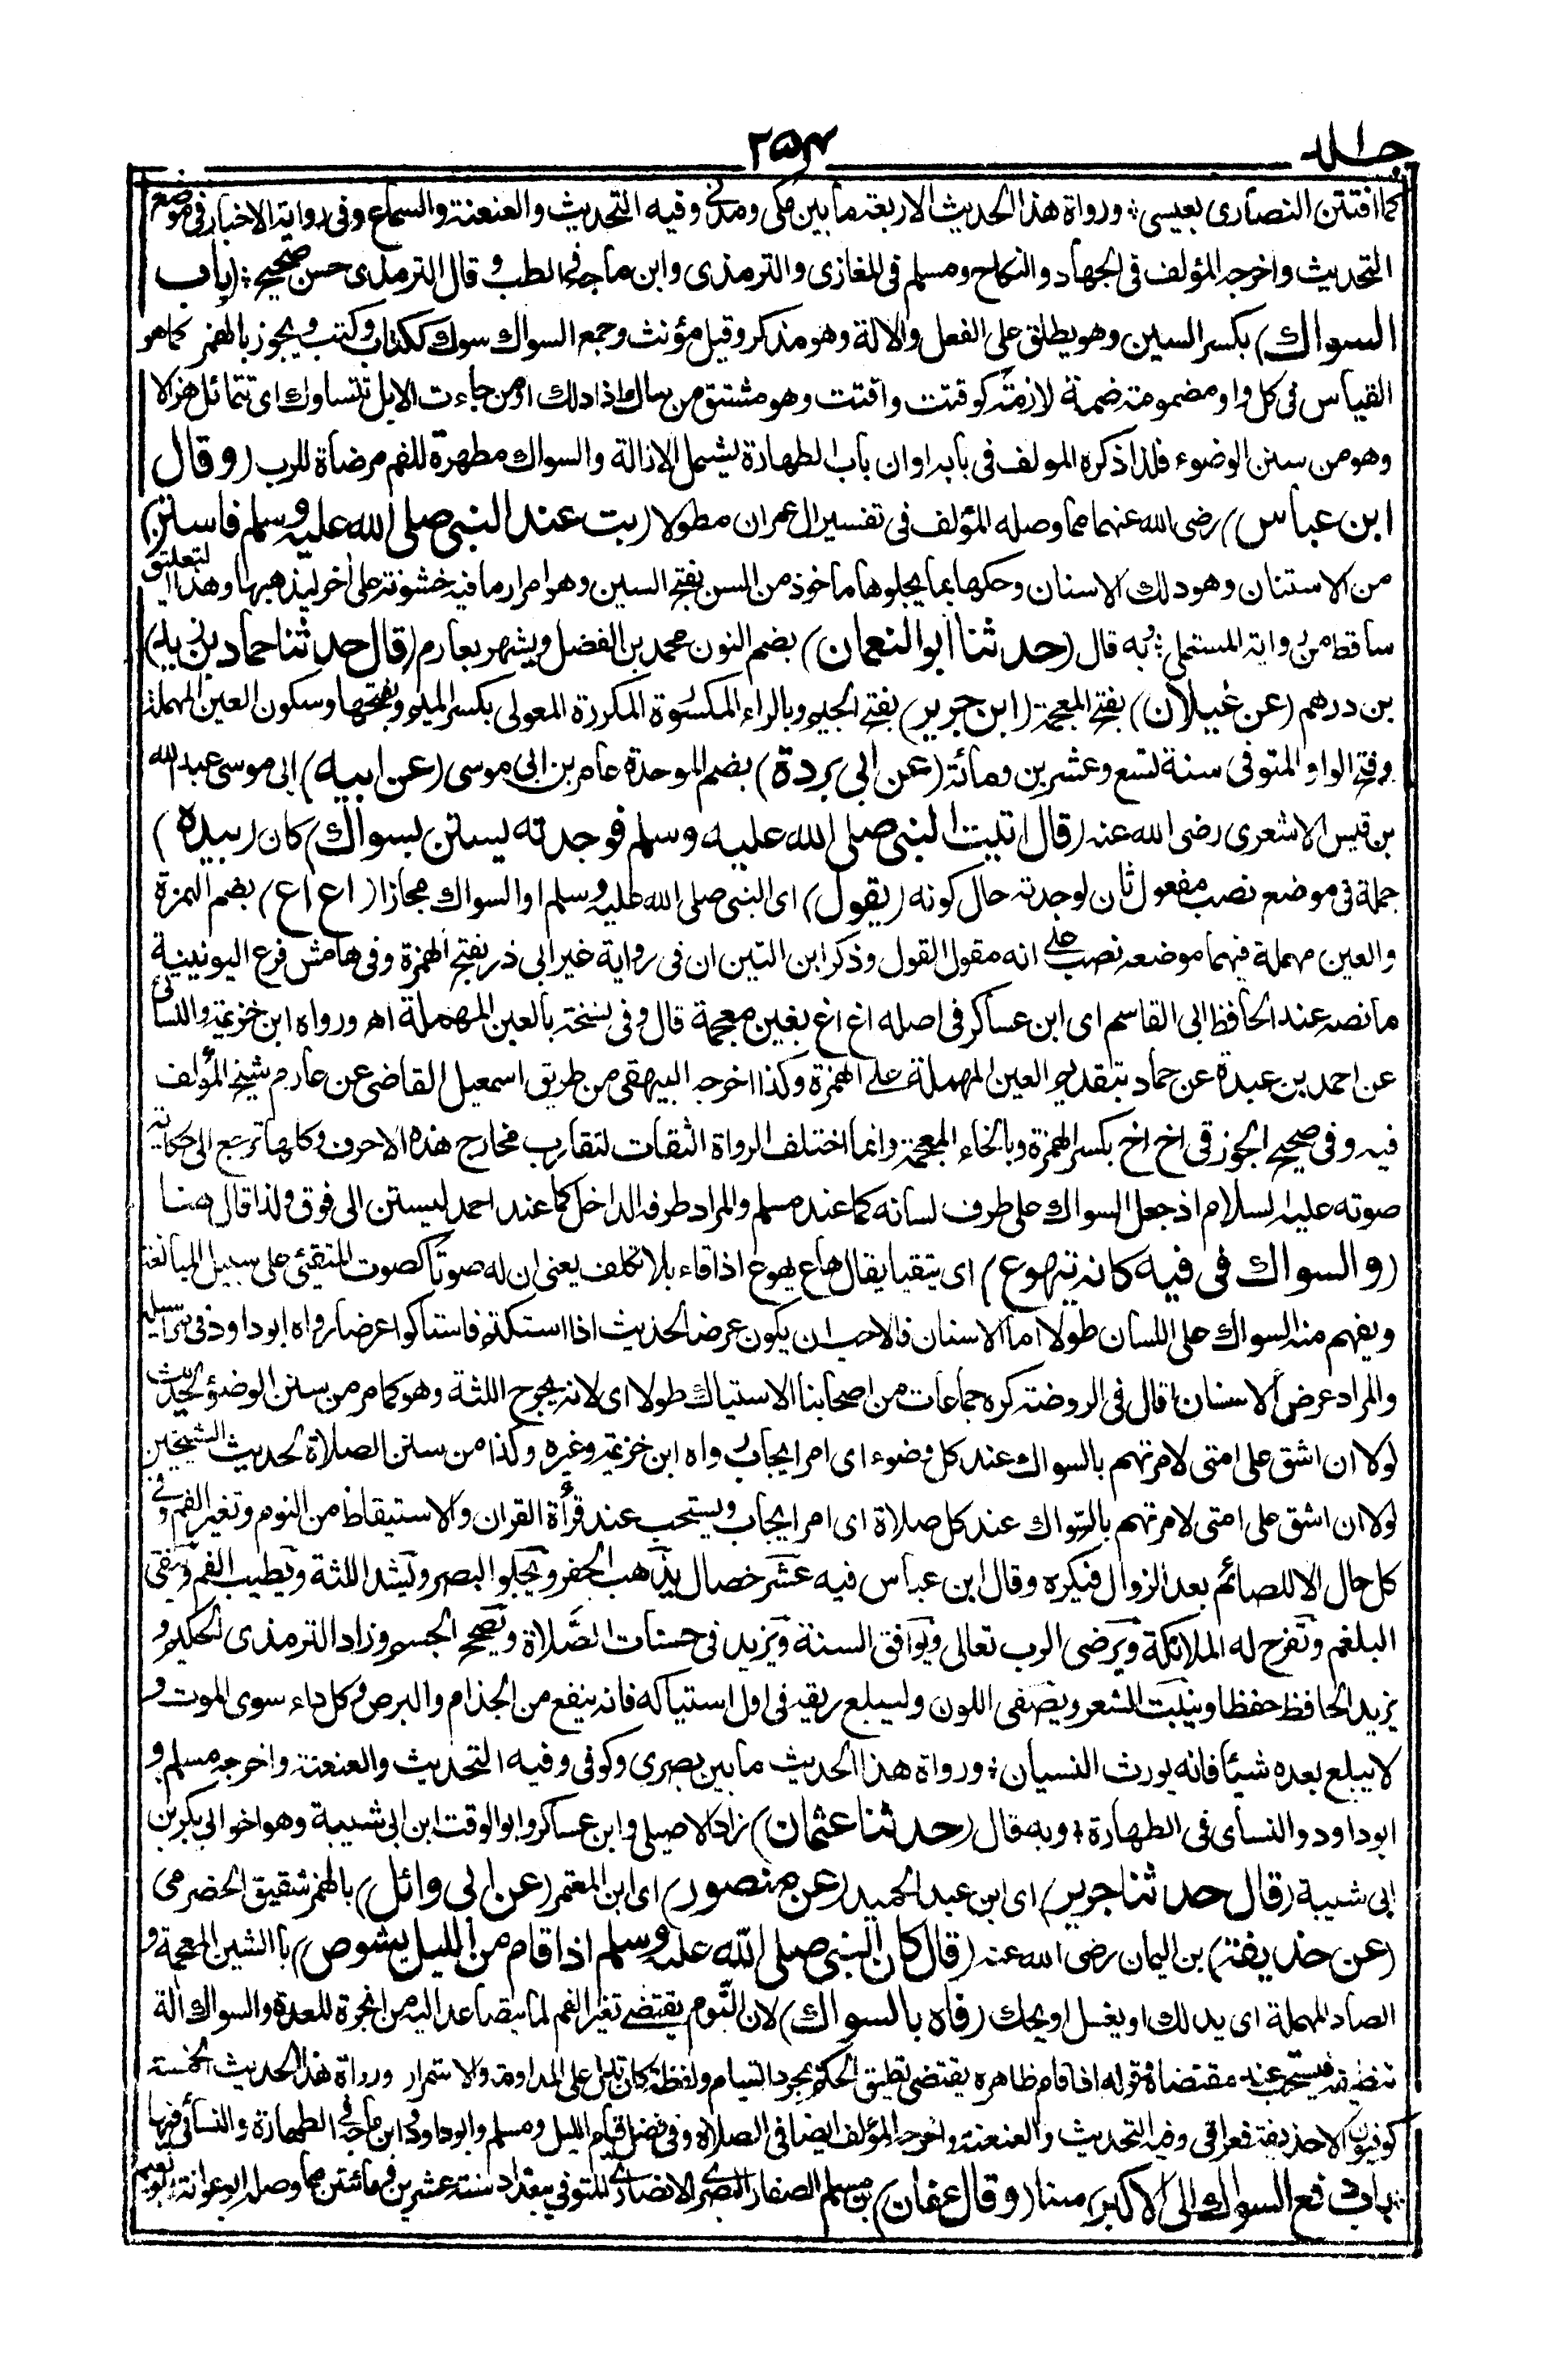 جلد
۲۵۴
كما افتتن النصارى بعيسى ؛ ورواة هذا الحديث الاربعة ما بين مكى ومدنى وفيه التحديث والعنعنة والسماع وفى رواية الاخبار فى موضع
التحديث واخرجه المؤلف فى الجهاد والنكاح ومسلم فى المغازى والترمذى وابن ماجه فى الطب وقال الترمذى حسن صحيح ؛ (باب
السواك) بكسر السين وهو يطلق على الفعل والالة وهو مذكر وقيل مؤنث وجمع السواك سوك ككتاب وكتب ويجوز بالهمز كما هو
القياس فى كل واو مضمومة ضمة لازمة كوقتت واقتت وهو مشتق من ساك اذا دلك او من جاءت الابل تتساوك اى تتمائل هزالا
وهو من سنن الوضوء فلذا ذكره المولف فى بابه او ان باب الطهارة يشمل الازالة والسواك مطهرة للفم مرضاة للرب (وقال
ابن عباس) رضى الله عنهما مما وصله المؤلف فى تفسير ال عمران مطولا (بت عند النبى صلى الله عليه وسلم فاستن)
من الاستنان وهو دلك الاسنان وحكها بما يجلوها ماخوذ من السن بفتح السين وهو امرار ما فيه خشونة على اخر ليذهبها وهذا التعليق
ساقط من رواية المستملى ؛ وبه قال (حدثنا ابو النعمان) بضم النون محمد بن الفضل ويشهر بعارم (قال حدثنا حماد بن زيد)
بن درهم (عن غيلان) بفتح المعجمة (ابن جرير) بفتح الجيم وبالراء المكسورة المكررة المعولى بكسر الميم وبفتحها وسكون العين المهملة
وفتح الواو المتوفى سنة تسع وعشرين ومائة (عن ابى بردة) بضم الموحدة عامر بن ابى موسى (عن ابيه) ابى موسى عبد الله
بن قيس الاشعرى رضى الله عنه (قال اتيت النبى صلى الله عليه وسلم فوجدته يستن بسواك) كان (بيده)
جملة فى موضع نصب مفعول ثان لوجدته حال كونه (يقول) اى النبى صلى الله عليه وسلم او السواك مجازا (اع اع) بضم الهمزة
والعين مهملة فيهما موضعه نصب على انه مقول القول وذكر ابن التين ان فى رواية غير ابى ذر بفتح الهمزة وفى هامش فرع اليونينية
ما نصه عند الحافظ ابى القاسم اى ابن عساكر فى اصله اغ اغ بغين معجمة قال وفى نسخة بالعين المهملة اهـ ورواه ابن خزيمة والنسائى
عن احمد بن عبدة عن حماد بتقديم العين المهملة على الهمزة وكذا اخرجه البيهقى من طريق اسمعيل القاضى عن عارم شيخ المؤلف
فيه وفى صحيح الجوزقى اخ اخ بكسر الهمزة وبالخاء المعجمة وانما اختلف الرواة الثقات لتقارب مخارج هذه الاحرف وكلها ترجع الى حكاية
صوته عليه السلام اذ جعل السواك على طرف لسانه كما عند مسلم والمراد طرفه الداخل كما عند احمد ليستن الى فوق ولذا قال هنا
(والسواك فى فيه كانه يتهوع) اى يتقيا يقال هاع يهوع اذا قاء بلا تكلف يعنى ان له صوتا كصوت المتقئ على سبيل المبالغة
ويفهم منه السواك على اللسان طولا اما الاسنان فالاحب ان يكون عرضا لحديث اذا استكتم فاستاكوا عرضا رواه ابو داود فى مراسيله
والمراد عرض الاسنان قال فى الروضة كره جماعات من اصحابنا الاستياك طولا اى لانه يجرح اللثة وهو كما مر من سنن الوضوء لحديث
لولا ان اشق على امتى لامرتهم بالسواك عند كل وضوء اى امر ايجاب رواه ابن خزيمة وغيره وكذا من سنن الصلاة لحديث الشيخين
لولا ان اشق على امتى لامرتهم بالسواك عند كل صلاة اى امر ايجاب ويستحب عند قرأة القران والاستيقاظ من النوم وتغير الفم وفى
كل حال الا للصائم بعد الزوال فيكره وقال ابن عباس فيه عشر خصال يذهب الحفر ويجلو البصر ويشد اللثة ويطيب الفم وينقى
البلغم وتفرح له الملائكة ويرضى الرب تعالى ويوافق السنة ويزيد فى حسنات الصلاة ويصح الجسم وزاد الترمذى الحكيم و
يزيد الحافظ حفظا وينبت الشعر ويصفى اللون وليبلع ريقه فى اول استياكه فانه ينفع من الجذام والبرص وكل داء سوى الموت و
لا يبلع بعده شيئا فانه يورث النسيان ؛ ورواة هذا الحديث ما بين بصرى وكوفى وفيه التحديث والعنعنة واخرجه مسلم و
ابو داود والنساى فى الطهارة ؛ وبه قال (حدثنا عثمان) زاد الاصيلى وابن عساكر وابو الوقت ابن ابى شيبة وهو اخو ابى بكر بن
ابى شيبة (قال حدثنا جرير) اى ابن عبد الحميد (عن منصور) اى ابن المعتمر (عن ابى وائل) بالهمز شقيق الحضرمى
(عن حذيفة) بن اليمان رضى الله عنه (قال كان النبى صلى الله عليه وسلم اذا قام من الليل يشوص) بالشين المعجمة و
الصاد المهملة اى يدلك او يغسل او يحك (فاه بالسواك) لان النوم يقتضى تغير الفم لما يتصاعد اليه من ابخرة المعدة والسواك الة
تنظيفه فيستحب عند مقتضاه وقوله اذا قام ظاهره يقتضى تعليق الحكم بمجرد القيام ولفظة كان تدل على المداومة والاستمرار ورواة هذا الحديث الخمسة
كوفيون الا حذيفة فعراقى وفيه التحديث والعنعنة واخرجه المؤلف ايضا فى الصلاة وفى فضل قيام الليل ومسلم وابو داود وابن ماجه فى الطهارة والنسائى فيها
؛ باب دفع السواك الى الاكبر منا (وقال عفان) بن مسلم الصفار البصرى الانصارى المتوفى ببغداد سنة عشرين ومائتين مما وصله ابو عوانة وابو نعيم